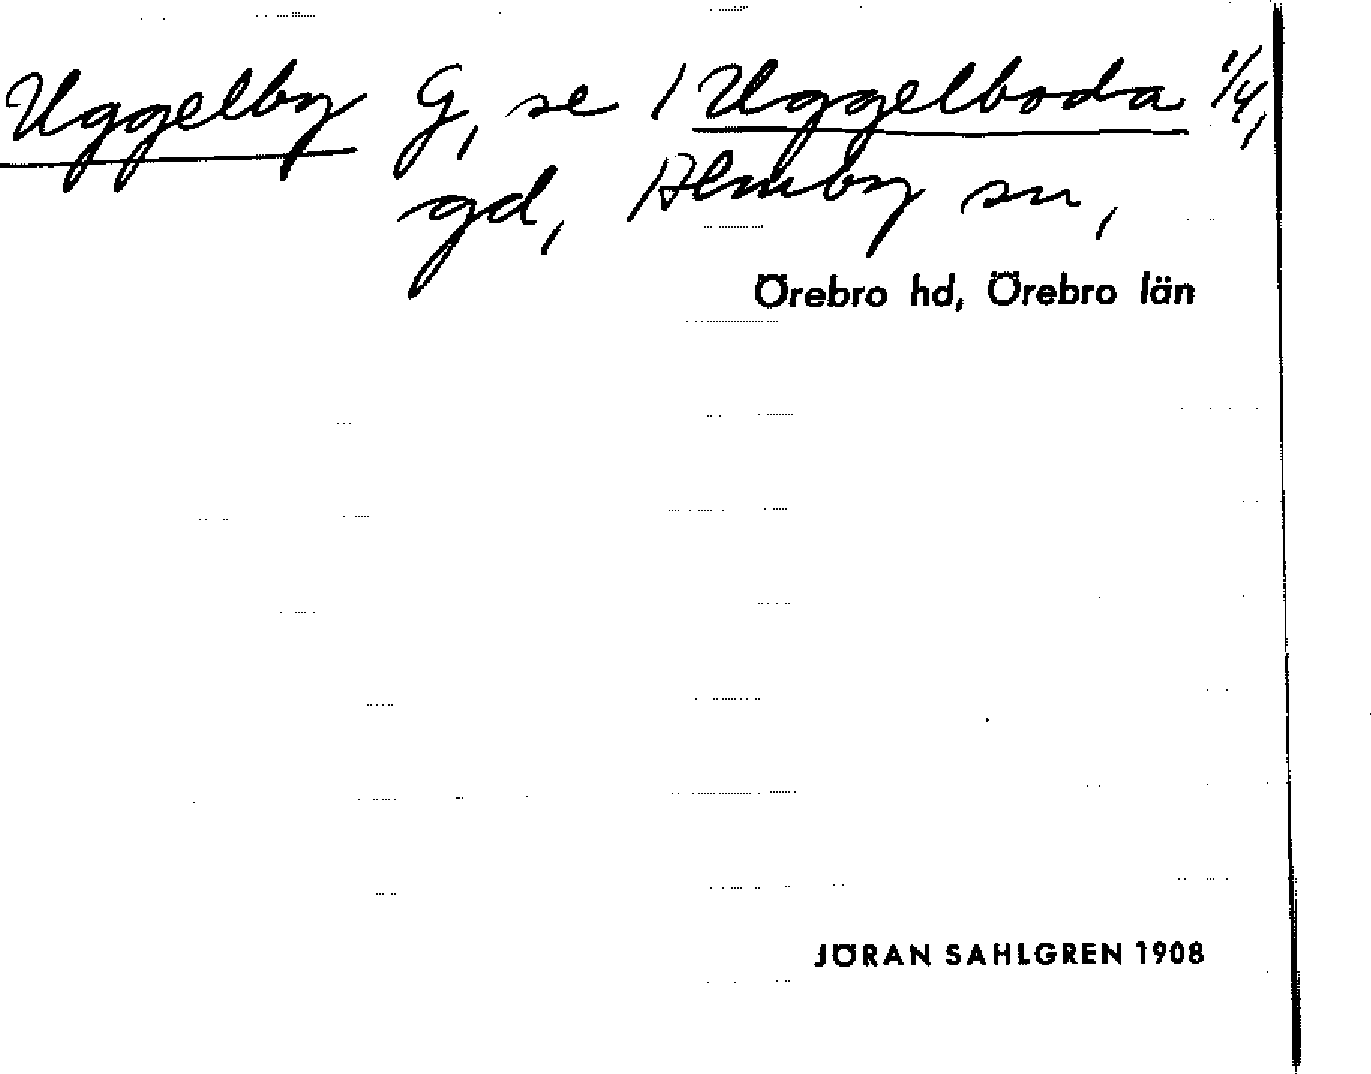 Uggelby G, se / Uggelboda 1/4,
gd, Almby sn,
Örebro hd, Örebro län
JÖRAN SAHLGREN 1908